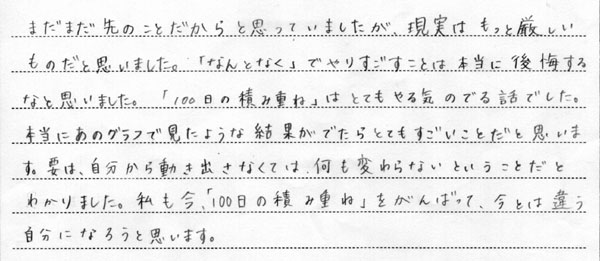 まだまだ先のことだからと思っていましたが、現実はもっと厳しい
ものだと思いました。「なんとなく」でやりすごすことは本当に後悔する
なと思いました。「100日の積み重ね」はとてもやる気のでる話でした。
本当にあのグラフで見たような結果がでたらとてもすごいことだと思いま
す。要は、自分から動き出さなくては、何も変わらないということだと
わかりました。私も今、「100日の積み重ね」をがんばって、今とは違う
自分になろうと思います。